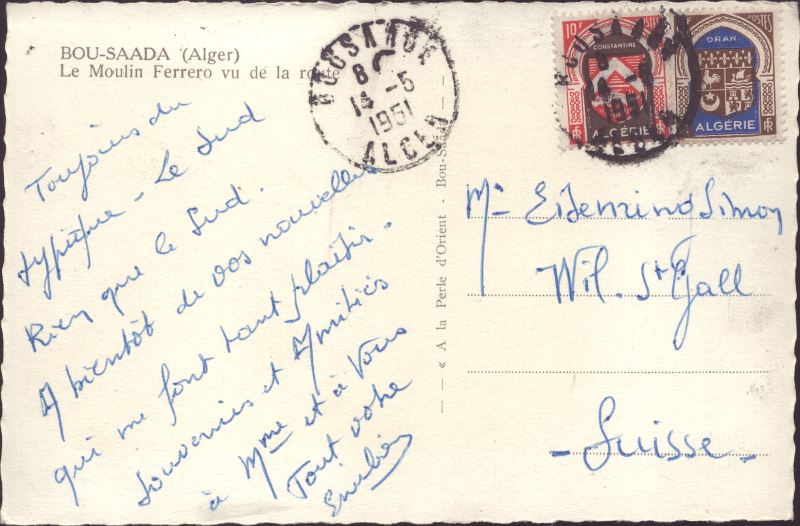 BOU-SAADA (Alger)
Le Moulin Ferrero vu de la route
Toujours du
typique - Le Sud
Rien que le Sud.
A bientôt de vos nouvelles
qui me font tant plaisir.
Souvenirs et Amitiés
à Mme et à Vous
Tout votre
« A la Perle d'Orient - Bou-Saada
BOUSAADE
8
14 -5
1951
ALGER
10F
CONSTANTINE
ALGÉRIE
RF
POSTES
ORAN
ALGÉRIE
RF
BOUSAADE
8
14 -5
1951
Mr Simon
Wil. St Gall
- Suisse -